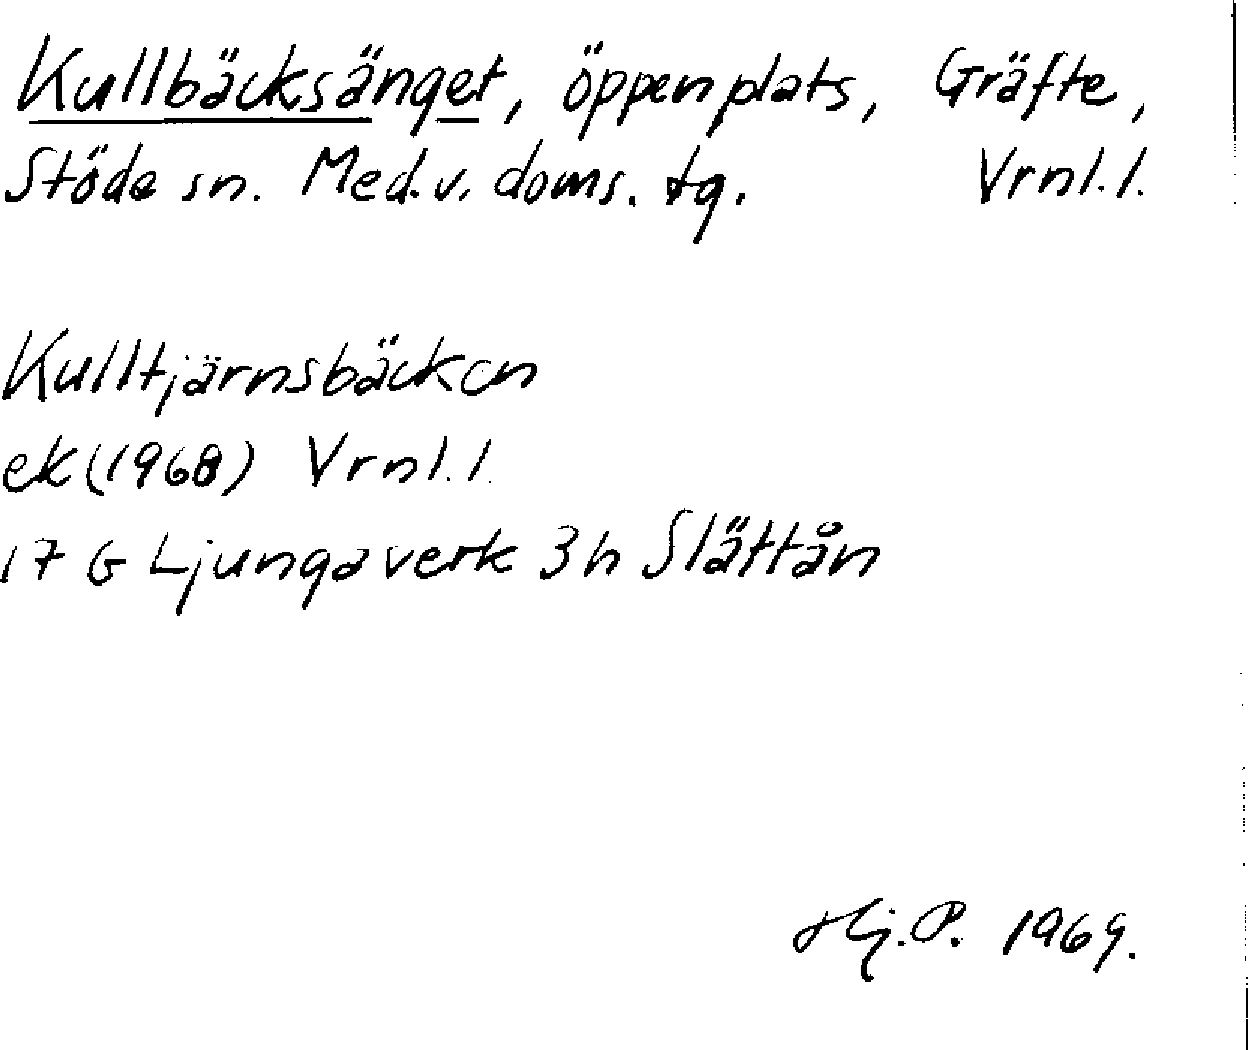 Kullbäcksänget, öppen plats, Gräfte,
Stöde sn. Med.v. doms. tg. Vrnl.l.
Kulltjärnsbäcken
ek (1968) Vrnl.l.
17 G Ljungaverk 3h Slättån
Hj.P. 1969.